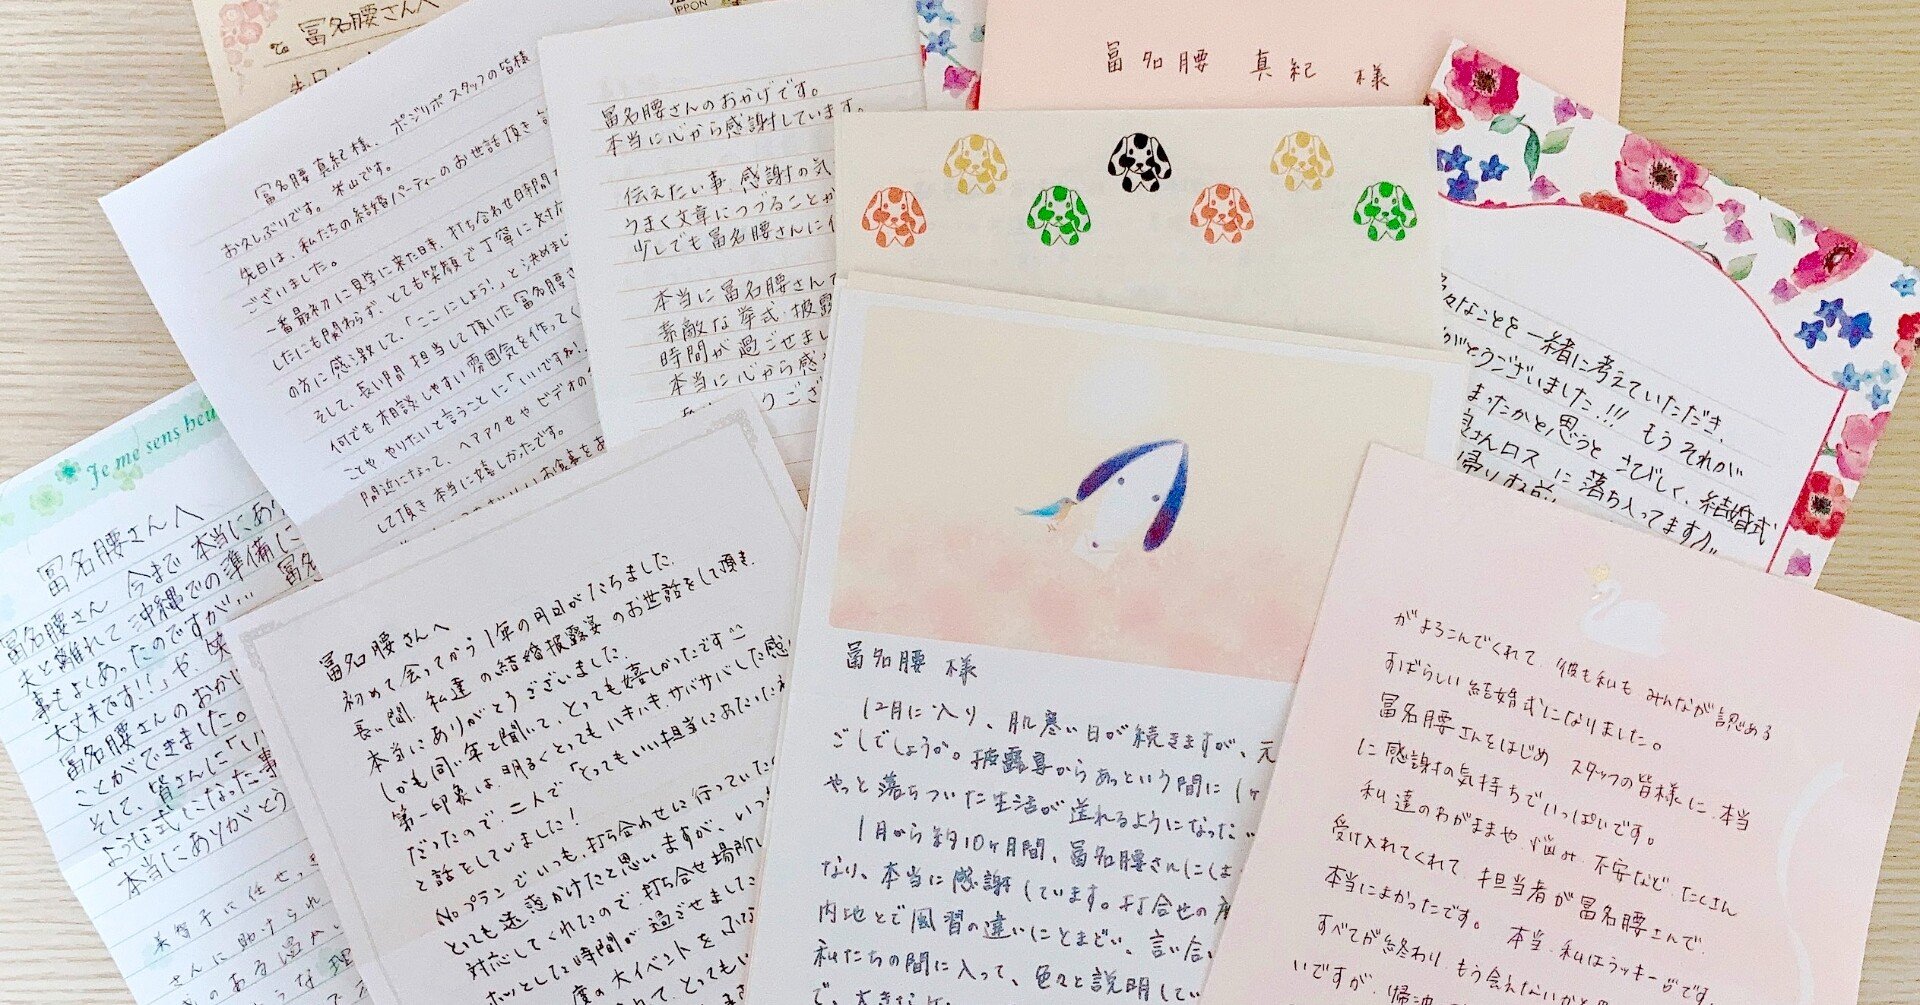 to 冨名腰さんへ
冨名腰真紀様、 ポジリポスタッフの皆様
お久しぶりです。 米山です。
先日は、私たちの結婚パーティーのお世話頂き
ございました。
一番最初に見学に来た日来、打ち合わせ日時間
したにも関わらず、とても笑顔で丁寧に対応
の方に感激して、「ここにしよう!」と決めまし
そして、長い間担当して頂いた冨名腰さ
何でも相談しやすい雰囲気を作ってく
ことややりたいと言うことに「いいですね!
間近になって、ヘアアクセやビデオの
して頂き本当に嬉しかったです。
IPPON
冨名腰さんのおかげです。
本当に心から感謝しています。
伝えたい事、感謝の気
うまく文章につづることが
少しでも冨名腰さんに
本当に冨名腰さんで
素敵な挙式、披露
時間が過ごせまし
本当に心から感
冨名腰 真紀 様
々なことを一緒に考えていただき、
がとうございました!!! もうそれが
まったかと思うと さびしく、結婚式
さんロスに落ち入ってます
Je me sens heu
冨名腰さんへ
冨名腰さん 今まで本当にあり
夫と離れて沖縄での準備に
事もよくあったのですが…
大丈夫です!!」や、笑
冨名腰さんのおかげ
ことができました。
そして、皆さんに「い
ような式になった事
本当にありがとう
に任せっ
さんに助けられ
のある温かい
うな理
冨名腰さんへ
初めて会ってから1年の月日がたちました。
長い間、私達の結婚披露宴のお世話をして頂き、
本当にありがとうございました。
しかも同い年と聞いて、とっても嬉しかったです
第一印象は、明るくとってもハキハキ、サバサバした感
だったので、二人で「とってもいい担当にあたったね
と話をしていました!
Noプランでいつも、打ち合わせに行っていた
とっても迷惑かけたと思いますが、いつ
対応してくれたので、打ち合せ場所
ホッとした時間が過ごせました
度の大イベントを
冨名腰 様
12月に入り、肌寒い日が続きますが、元
ごしでしょうか。披露宴からあっという間に1ヶ
やっと落ちついた生活が送れるようになった
1月から約10ヶ月間、冨名腰さんには
なり、本当に感謝しています。打合せの度
内地とで風習の違いにとまどい、言い合い
私たちの間に入って、色々と説明してい
で、大きな
がよろこんでくれて、彼も私も みんなが認める
すばらしい結婚式になりました。
冨名腰さんをはじめ スタッフの皆様に、本当
に感謝の気持ちでいっぱいです。
私達のわがままや、悩み、不安など、たくさん
受け入れてくれて 担当者が冨名腰さんで、
本当によかったです。 本当、私はラッキーガールです。
すべてが終わり、もう会えないかと思
いですが、帰沖